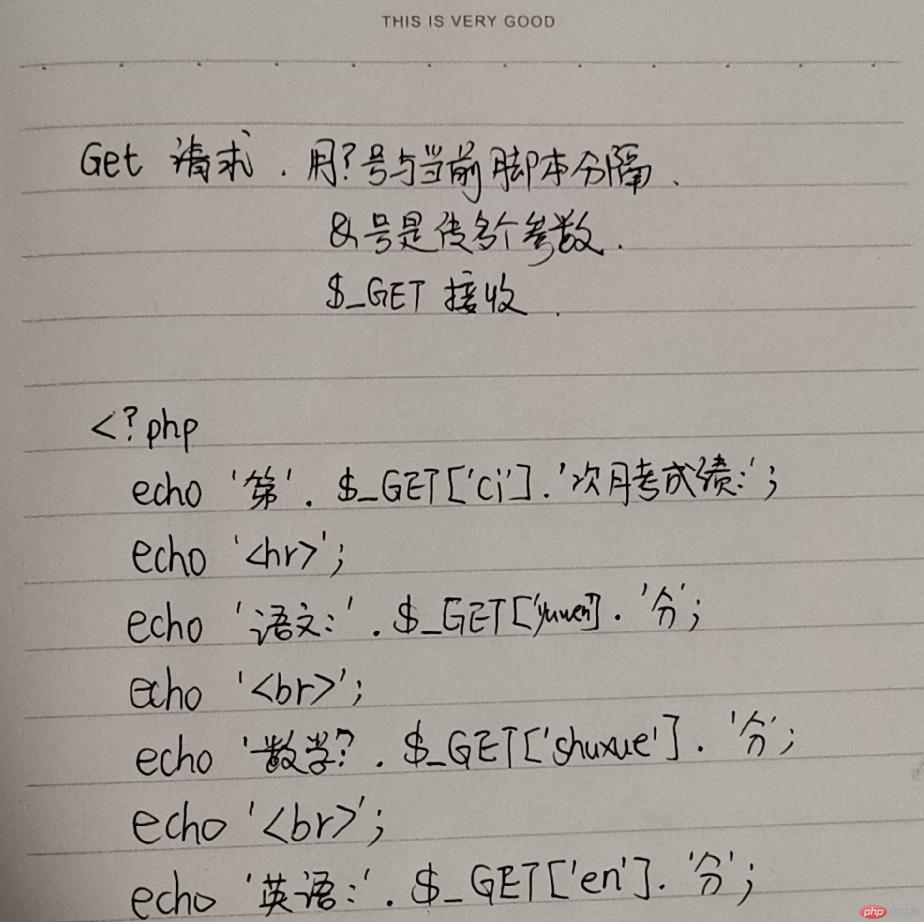 THIS IS VERY GOOD
Get 请求. 用?号与当前脚本分隔、
&号是传多个参数.
$_GET 接收.
<?php
echo '第'. $_GET['ci'].'次月考成绩:';
echo '<hr>';
echo '语文:'. $_GET['yuwen]. '分';
echo '<br>';
echo '数学?. $_GET['shuxue']. '分';
echo '<br>';
echo '英语:'. $_GET['en']. '分';
php